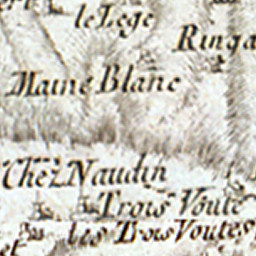 le Lége
Ringa
Maine Blanc
Chéz Naudin
Trois Voûte
les Trois Voutes
et